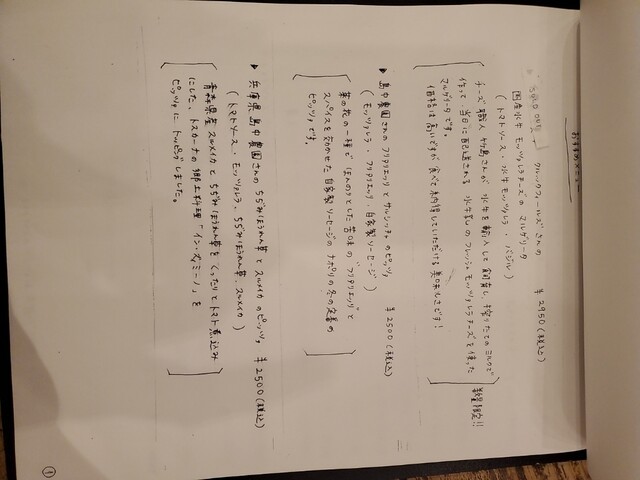 おすすめメニュー
SOLD OUT
クルックフィールズさんの
国産水牛モッツァレラチーズのマルゲリータ ¥2950(税込)
(トマトソース・水牛モッツァレラ・バジル)
チーズ職人竹島さんが水牛を輸入して飼育し、搾りたてのミルクで
作って、当日に配送される水牛乳のフレッシュモッツァレラチーズを使った
マルゲリータです。
価格は高いですが食べて納得していただける美味しさです!
数量限定!!
▶島中農園さんのフリアリエッリとサルシッチャのピッツァ ¥2500(税込)
(モッツァレラ・フリアリエッリ・自家製ソーセージ)
菜の花の一種でほんのりとした苦味のフリアリエッリと
スパイスを効かせた自家製ソーセージのナポリの冬の定番の
ピッツァです。
▶兵庫県島中農園さんのちぢみほうれん草とスルメイカのピッツァ ¥2500(税込)
(トマトソース・モッツァレラ・ちぢみほうれん草・スルメイカ)
青森県産スルメイカとちぢみほうれん草をくったりとトマト煮込み
にした、トスカーナの郷土料理「インズィミーノ」を
ピッツァにトッピングしました。
①